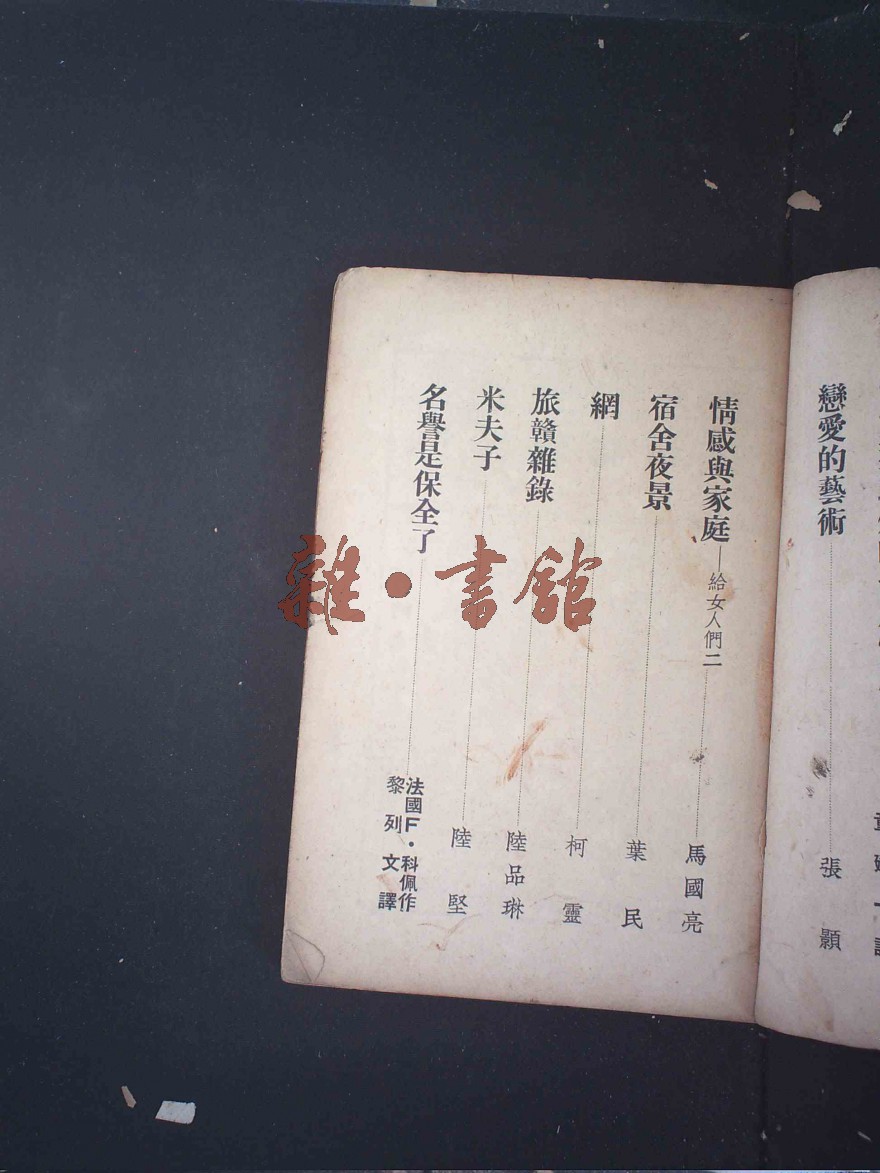 戀愛的藝術……張顥
情感與家庭—給女人們二……馬國亮
宿舍夜景……葉民
網……柯靈
旅贛雜錄……陸品琳
米夫子……陸堅
名譽是保全了……法國F·科佩作
黎列文譯
雜·書館